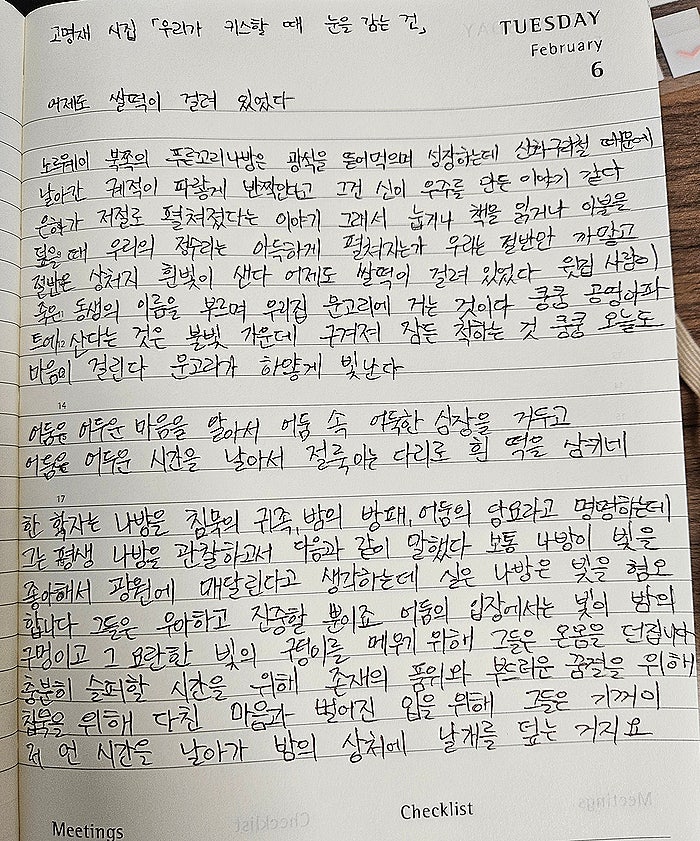 고명재 시집 「우리가 키스할 때 눈을 감는 건」
TUESDAY
February
6
어제도 쌀떡이 걸려 있었다
노르웨이 북쪽의 푸른꼬리나방은 광석을 뜯어먹으며 성장하는데 산화구리철 때문에
날아간 궤적이 파랗게 반짝인다고 그건 신이 우주를 만든 이야기 같다
은하가 저절로 펼쳐졌다는 이야기 그래서 눕거나 책을 읽거나 이불을
덮을 때 우리의 정수리는 아득하게 펼쳐지는가 우리는 절반만 까맣고
절반은 상처지 흰빛이 샌다 어제도 쌀떡이 걸려 있었다 윗집 사람이
죽은 동생의 이름을 부르며 우리집 문고리에 거는 것이다 쿵쿵 공영아파
트에 산다는 것은 불빛 가운데 구겨져 잠든 척하는 것 쿵쿵 오늘도
마음이 걸린다 문고리가 하얗게 빛난다
14
어둠은 어두운 마음을 알아서 어둠 속 어둑한 심장을 거두고
어둠은 어두운 시간을 날아서 절룩이는 다리로 흰 떡을 삼키네
17
한 학자는 나방을 침묵의 귀족, 밤의 방패, 어둠의 망요라고 명명하는데
그는 평생 나방을 관찰하고서 다음과 같이 말했다 보통 나방이 빛을
좋아해서 광원에 매달린다고 생각하는데 실은 나방은 빛을 혐오
합니다 그들은 우아하고 진중할 뿐이죠 어둠의 입장에서는 빛이 밤의
구멍이고 그 요란한 빛의 구덩이를 메우기 위해 그들은 온몸을 던집니다
충분히 슬퍼할 시간을 위해 존재의 품위와 부드러운 꿈결을 위해
침묵을 위해 다친 마음과 벌어진 입을 위해 그들은 기꺼이
언 시간을 날아가 밤의 상처에 날개를 덮는 거지요
Meetings
Checklist